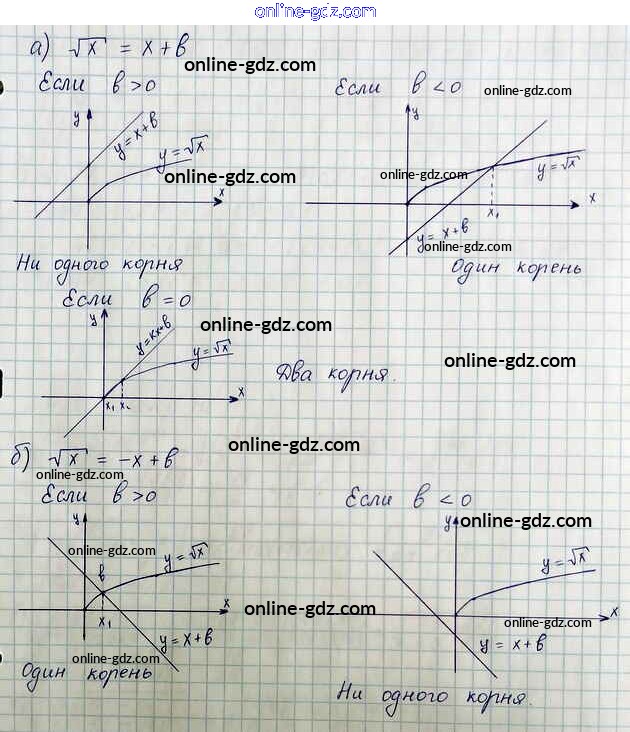 online-gdz.com
а) √x = x + b
online-gdz.com
Если b > 0
Если b < 0
online-gdz.com
y
y = x + b
y = √x
x
online-gdz.com
y
online-gdz.com
y = √x
x
x₁
y = x + b
online-gdz.com
Ни одного корня
Один корень
Если b = 0
online-gdz.com
y
y = kx + b
y = √x
x
x₁ x₂
Два корня.
online-gdz.com
online-gdz.com
б) √x = -x + b
online-gdz.com
Если b > 0
Если b < 0
y
online-gdz.com
b
y = √x
x
x₁
y = x + b
online-gdz.com
y
online-gdz.com
y = √x
x
online-gdz.com
y = x + b
online-gdz.com
Один корень
Ни одного корня.